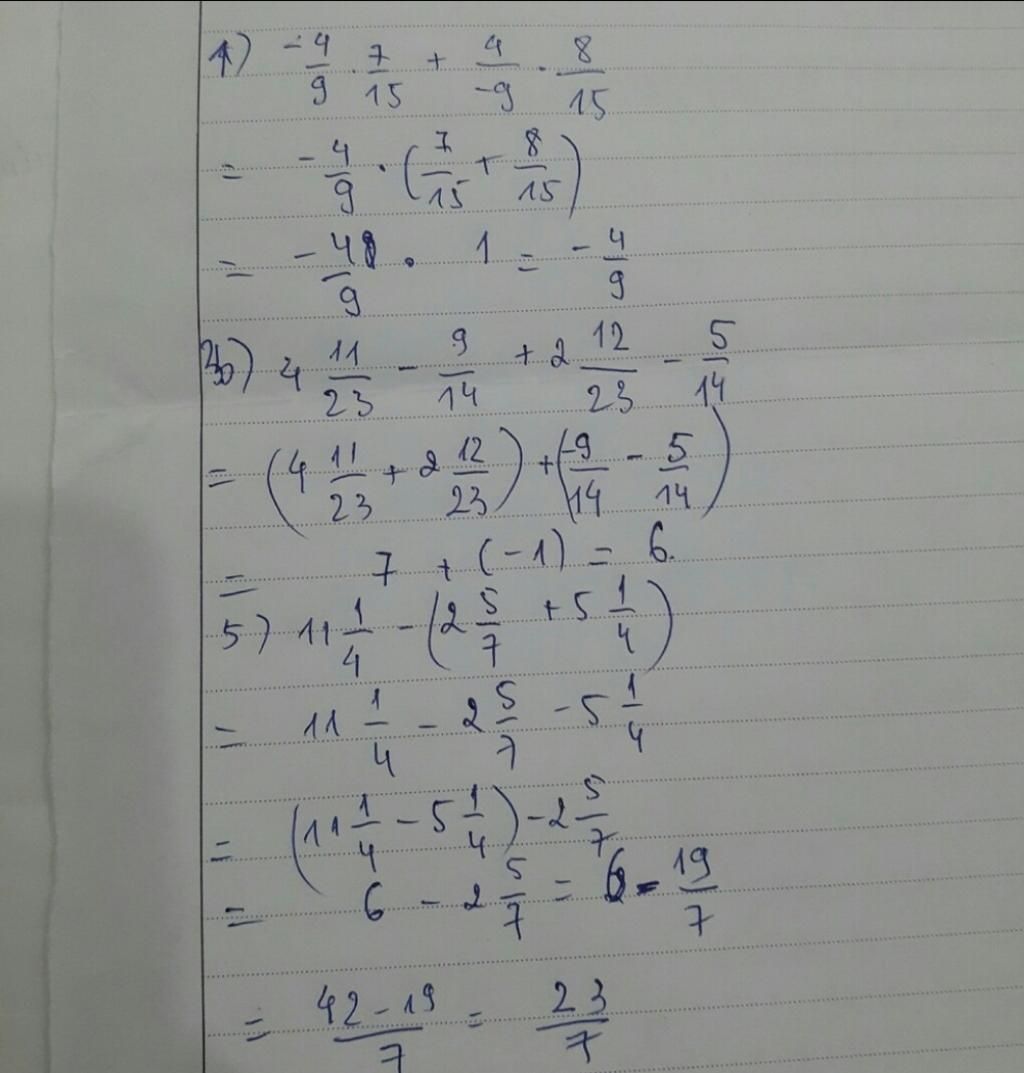 1) -4/9 . 7/15 + 4/-9 . 8/15
= -4/9 . (7/15 + 8/15)
= -4/9 . 1 = -4/9
b) 4 11/23 - 9/14 + 2 12/23 - 5/14
= (4 11/23 + 2 12/23) + (-9/14 - 5/14)
= 7 + (-1) = 6.
5) 11 1/4 - (2 5/7 + 5 1/4)
= 11 1/4 - 2 5/7 - 5 1/4
= (11 1/4 - 5 1/4) - 2 5/7
= 6 - 2 5/7 = 6 - 19/7
= 42 - 19/7 = 23/7